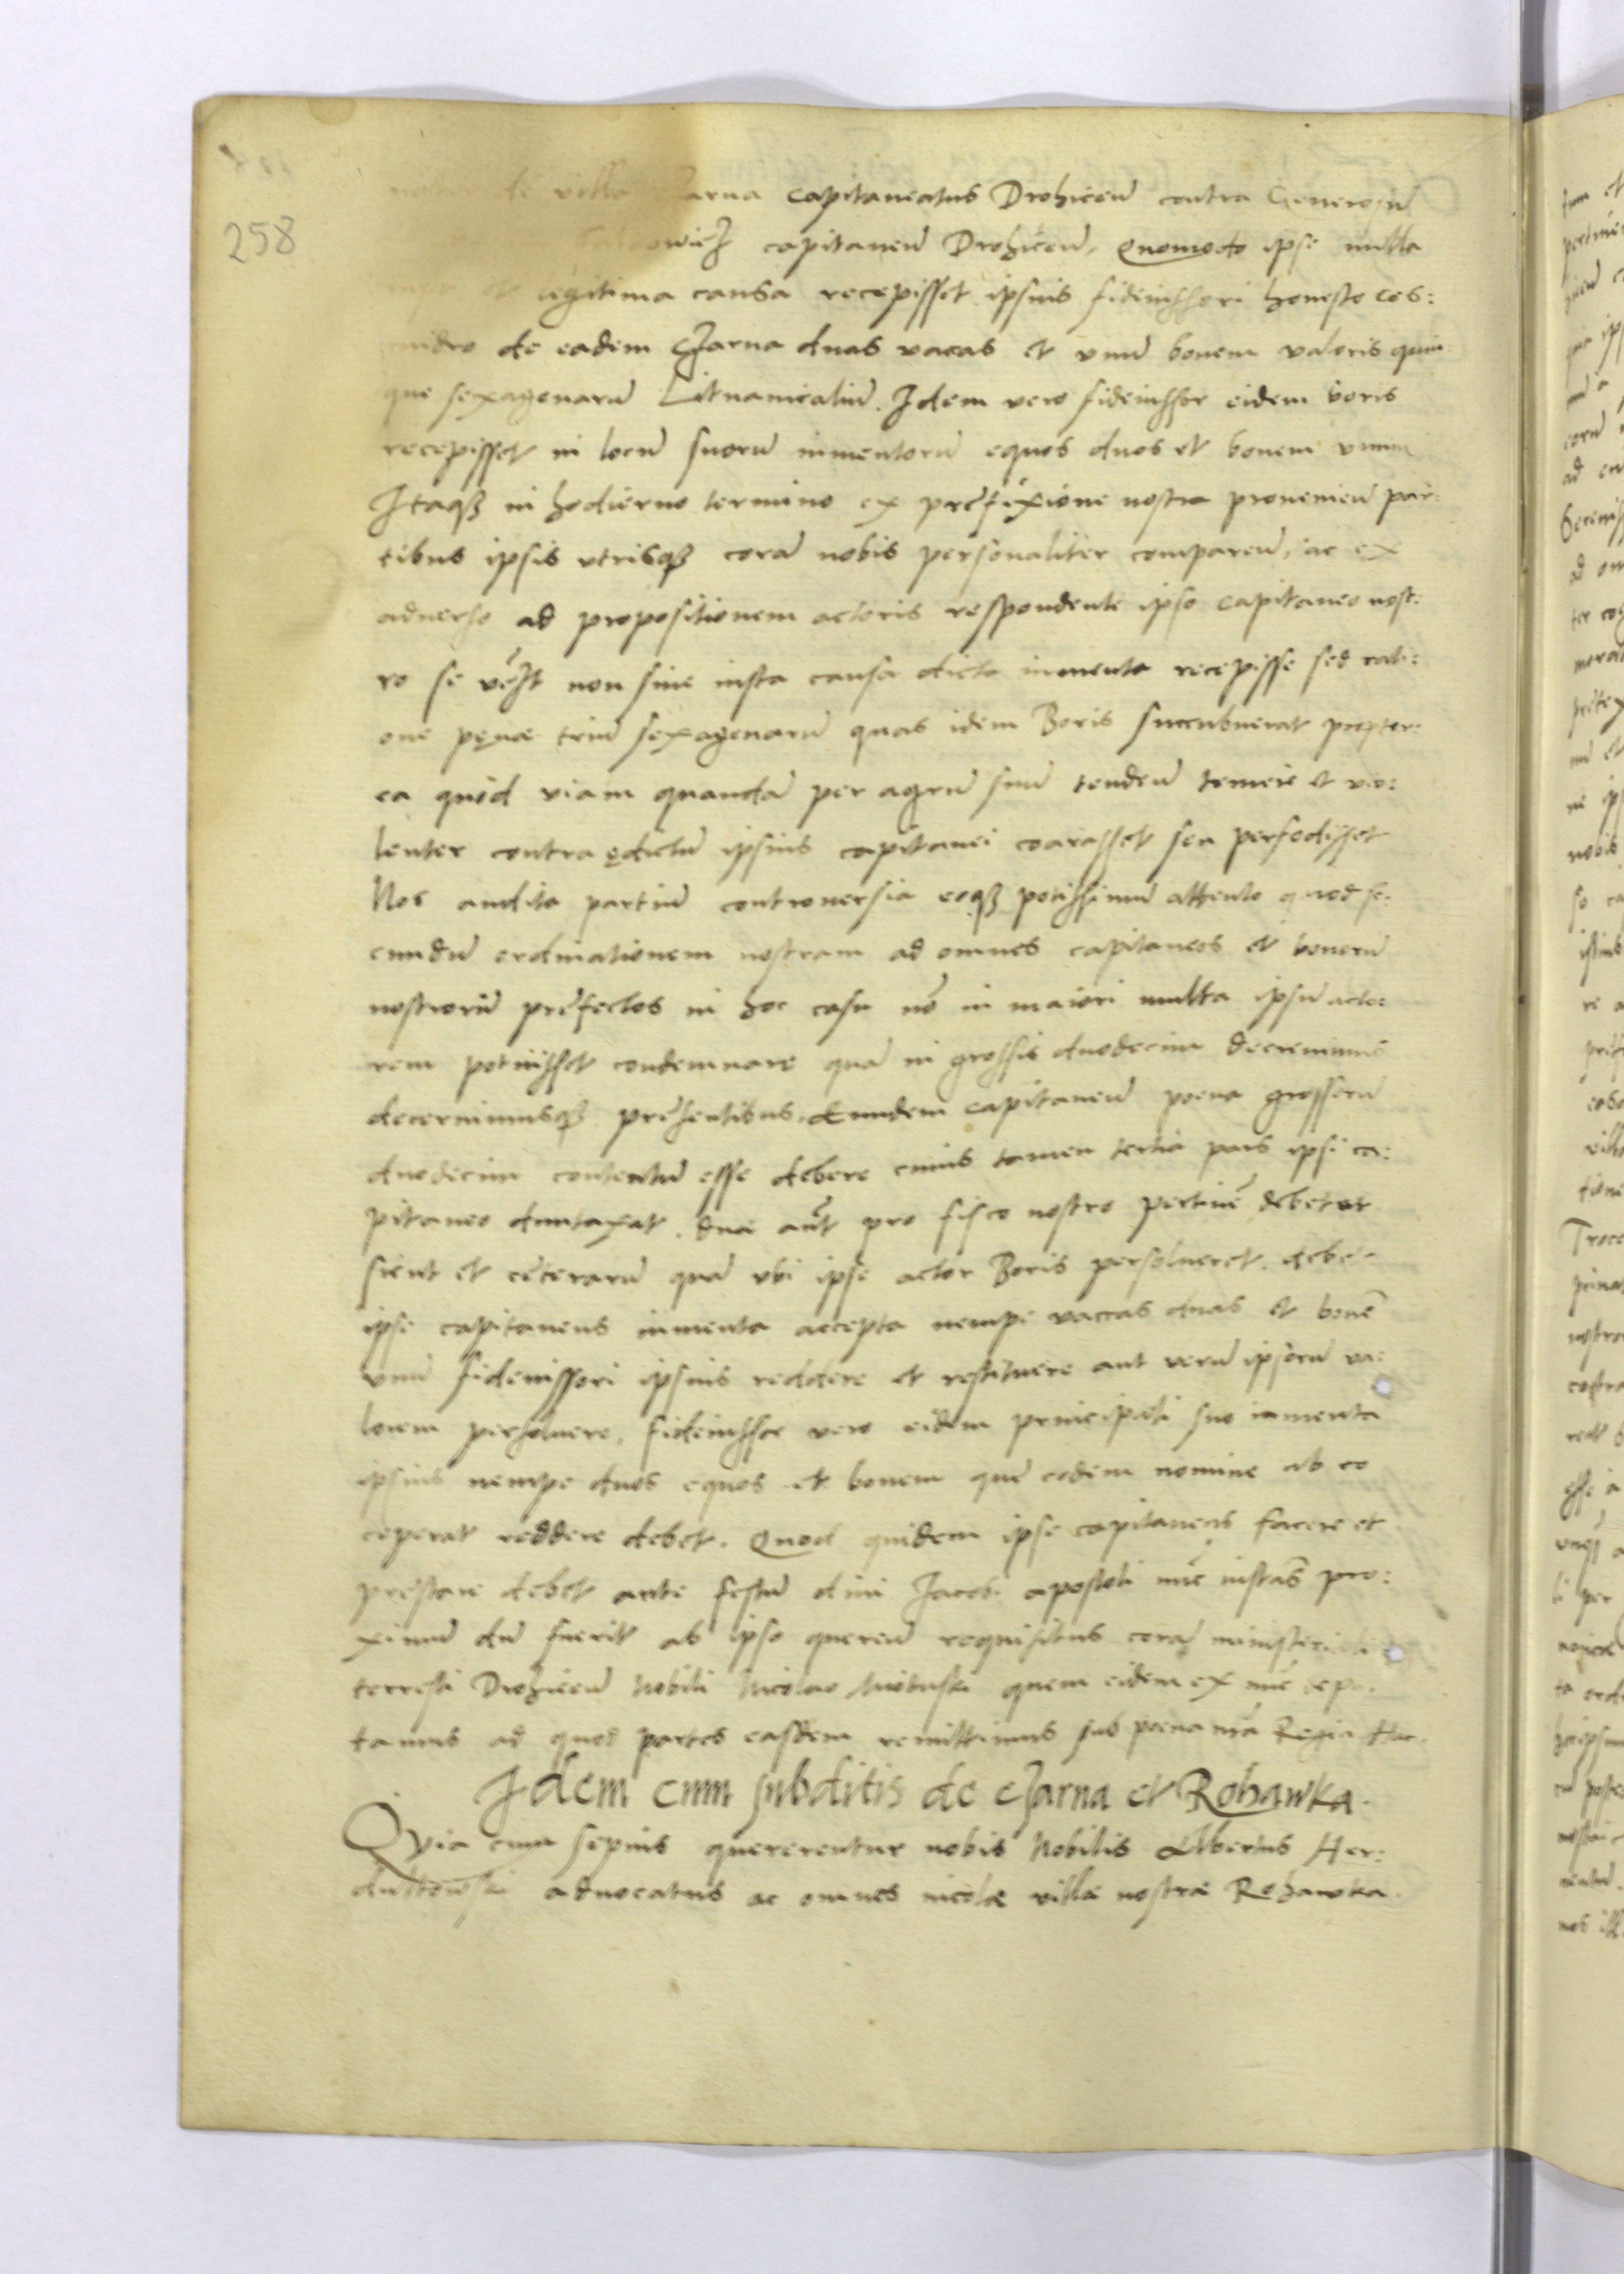 258
de villa arna capitaneatus Drohicen̄ contra Generosū
owicz capitaneū Drohicen̄, Quomodo ipse nulla
legitima causa recepisset ipsius fideiussori honesto Cos:
de eadem Czarna duas vacas et vnū bouem valoris quin
que sexagenarū Lituanicaliū. Idem vero fideiussor eidem boris
recepisset in locū suorū iumentorū equos duos et bouem vnum
Itaqꝫ in hodierno termino ex prefixione nostra proueniēn par:
tibus ipsis vtrisqꝫ corā nobis personaliter comparēn, ac ex
aduerso ad propositionem actoris respondente ipso capitaneo nost:
ro se non sine iusta causa dicta iumenta recepisse sed rati:
one pęnae triū sexagenarū quas idem Boris succubuerat propter:
ea quod viam quandā per agrū suū tenden̄ temere et vio:
lenter contra ędictū ipsius capitanei coarasset seu perfodisset
Nos audita partiū controuersia eoqꝫ potissimū attento quod se:
cundū ordinationem nostram ad omnes capitaneos et bonorū
nostrorū prefectos in hoc casu nō in maiori multa ipsū acto:
rem potuisset condemnare quā in grossis duodecim decreuimus
decernimusqꝫ presentibus. Eundem capitaneū poena grossorū
duodecim contentū esse debere cuius tamen tertia pars ipsi ca:
pitaneo duntaxat. duae aūt pro fisco nostro pertinē debet
sicut et ceterarū quā vbi ipse actor Boris persolueret. debet
ipse capitaneus iumenta accepta nempe vaccas duas et bouē
vnū fideiussori ipsius reddere et restituere aut verū ipsorū va:
lorem persoluere, fideiussor vero eidem principali suo iumenta
ipsius nempe duos equos et bouem que eodem nomine ab eo
ceperat reddere debet. Quod quidem ipse capitaneus facere et
prestare debet ante festū diui Jacobi apostoli nūc instās pro:
ximū dū fuerit ab ipso queren̄ requisitus corā ministeriali
terrestri Drohicen̄ Nobili Nicolao quem eidem ex nūc depu
tamus ad quod partes easdem remittimus sub poena nrā Regia Hac
Idem cum subditis de cJarna et Rohawka.
Quia cum sepius quererentur nobis Nobilis Albertus Her:
dultowski aduocatus ac omnes incolae villae nostrae Rohawka.